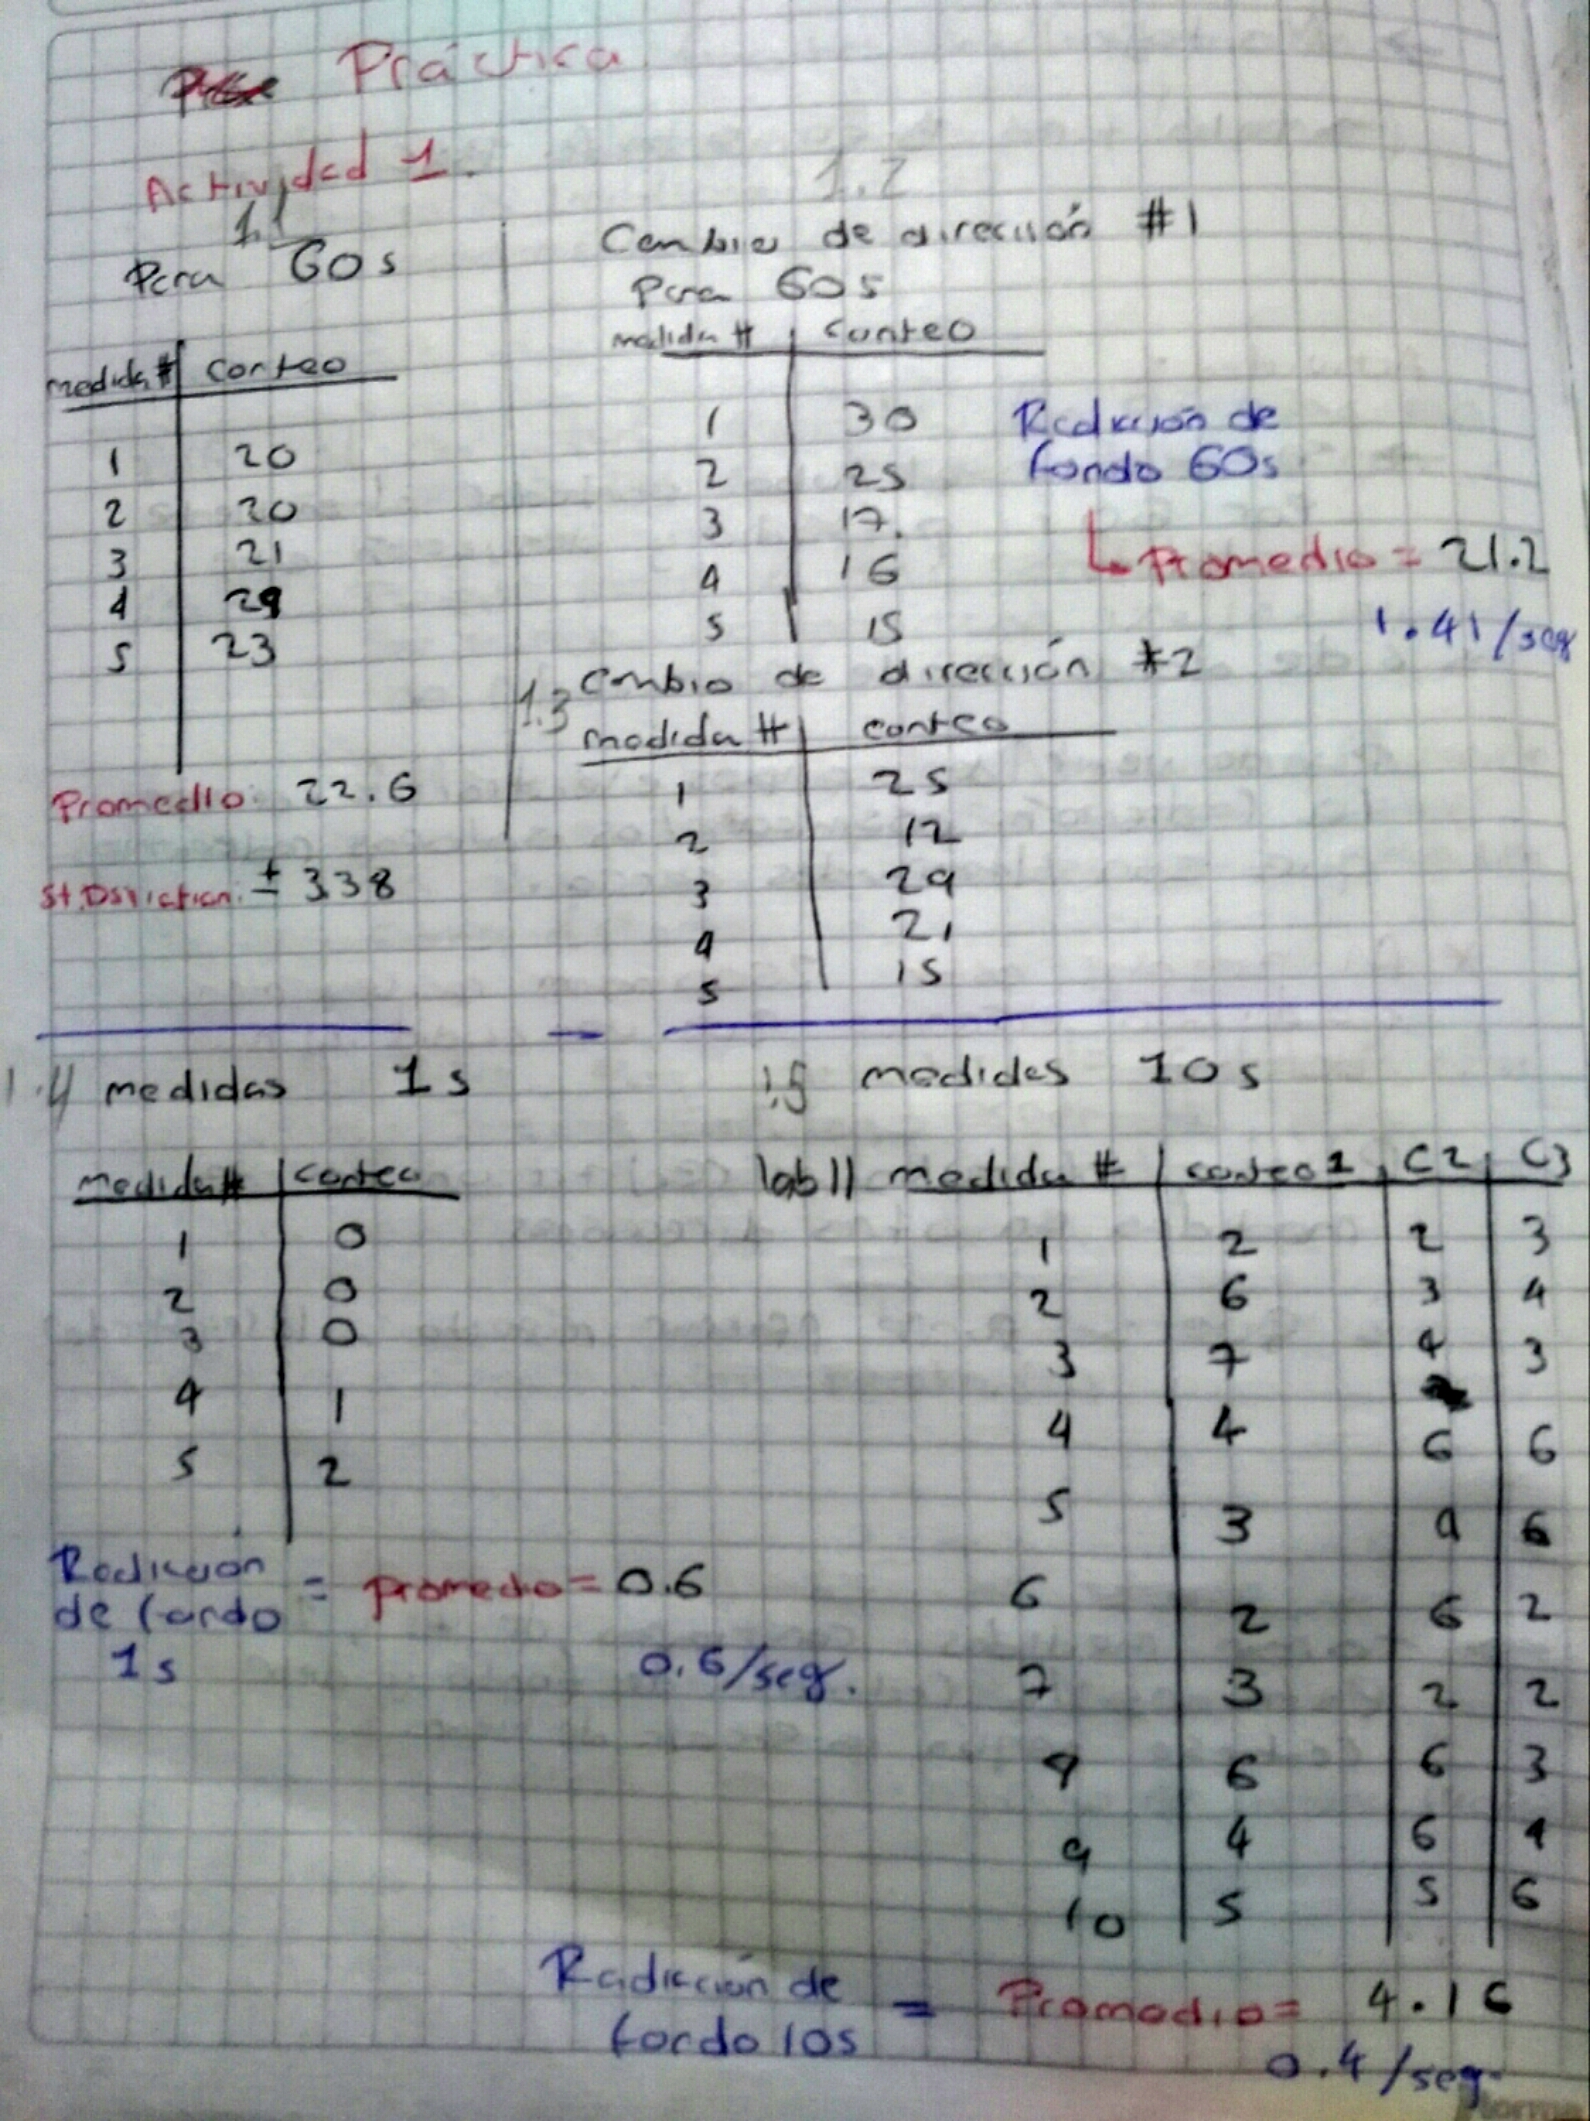 Práctica
Actividad 1.
1.1
Para 60s
medida # conteo
1 20
2 20
3 21
4 29
5 23
Promedio: 22.6
± 3.38
1.2
Cambio de dirección #1
Para 60s
medida # conteo
1 30
2 25
3 17.
4 16
5 15
Radiación de
fondo 60s
Promedio = 21.2
1.41/seg
1.3 Cambio de dirección #2
medida # conteo
1 25
2 12
3 29
4 21
5 15
1.4 medidas 1s
medida # conteo
1 0
2 0
3 0
4 1
5 2
Radiación
de fondo = promedio = 0.6
1s
0.6/seg.
1.5 medidas 10s
lab11 medida # conteo 1 C2 C3
1 2 2 3
2 6 3 4
3 7 4 3
4 4 6 6
5 3 4 6
6 2 6 2
7 3 2 2
6 6 3
9 4 6 4
10 5 5 6
Radiación de
fondo 10s = Promedio = 4.16
0.4/seg.